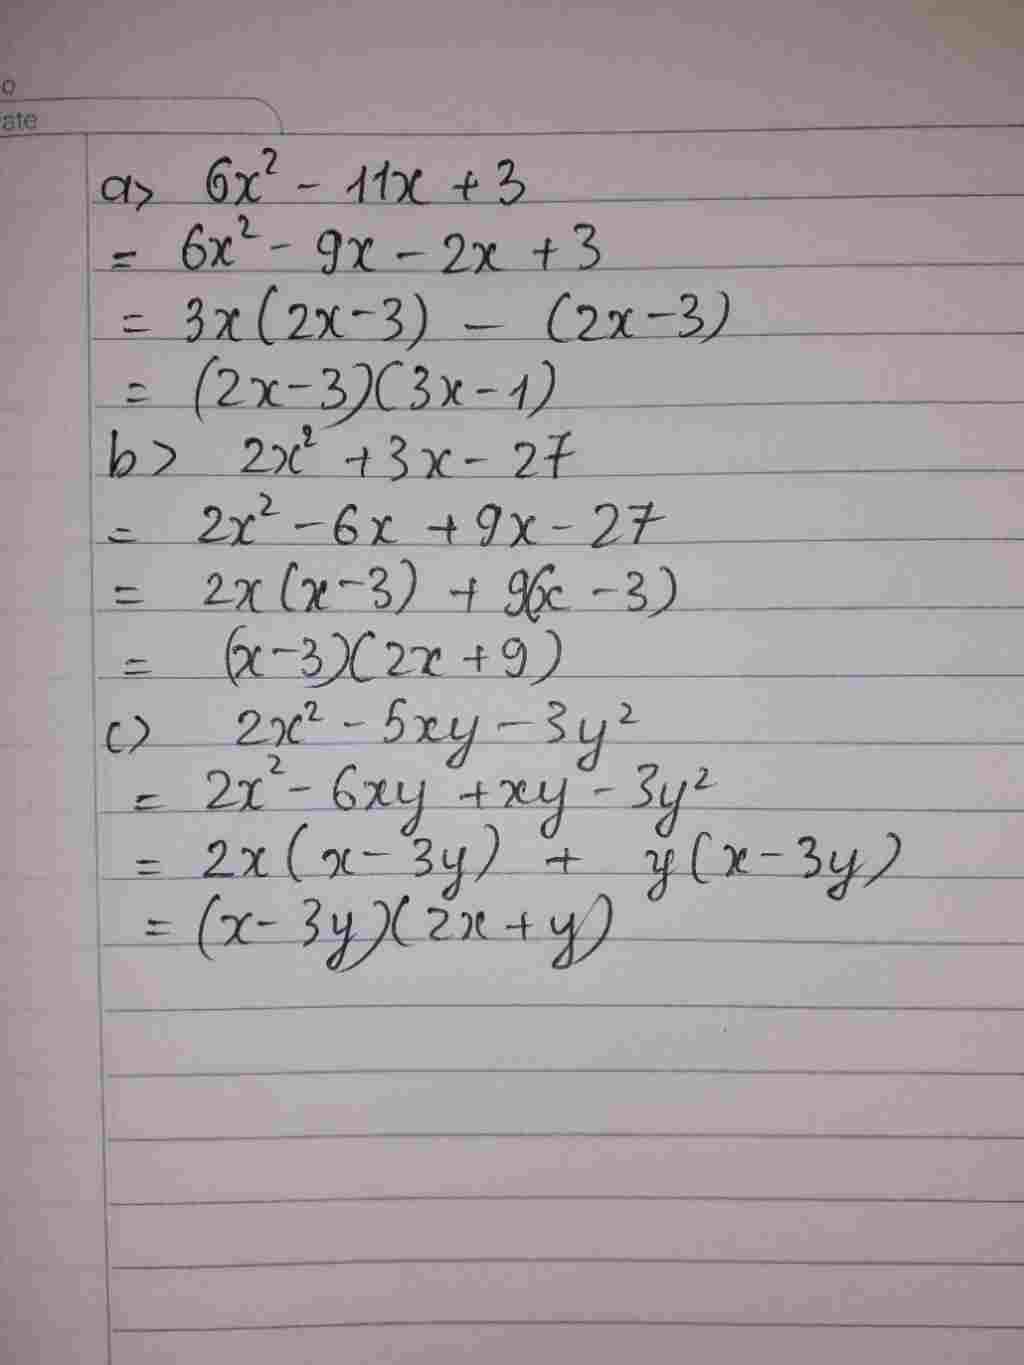 o
ate
a> 6x² - 11x + 3
= 6x² - 9x - 2x + 3
= 3x(2x-3) - (2x-3)
= (2x-3)(3x-1)
b> 2x² + 3x - 27
= 2x² - 6x + 9x - 27
= 2x(x-3) + 9(x-3)
= (x-3)(2x+9)
c) 2x² - 5xy - 3y²
= 2x² - 6xy + xy - 3y²
= 2x(x-3y) + y(x-3y)
= (x-3y)(2x+y)